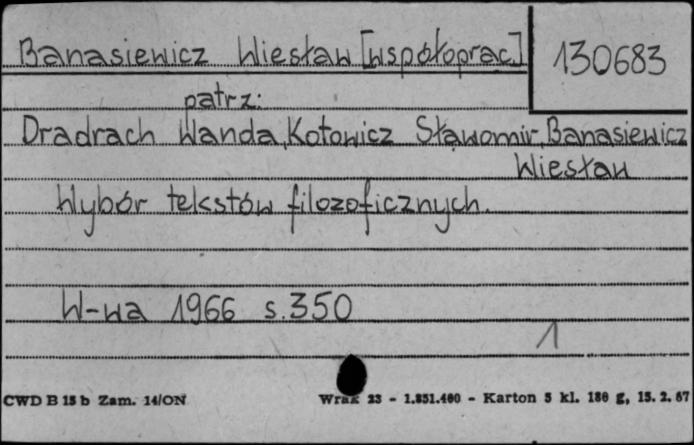 Banasiewicz Wiesław [współoprac.]
130683
patrz:
Dradrach Wanda, Kotowicz Sławomir, Banasiewicz
Wiesław
Wybór tekstów filozoficznych.
W-wa 1966 s. 350
1
CWD B 15 b Zam. 14/ON
Wrak 23 - 1.851.400 - Karton 5 kl. 180 g, 15. 2. 67